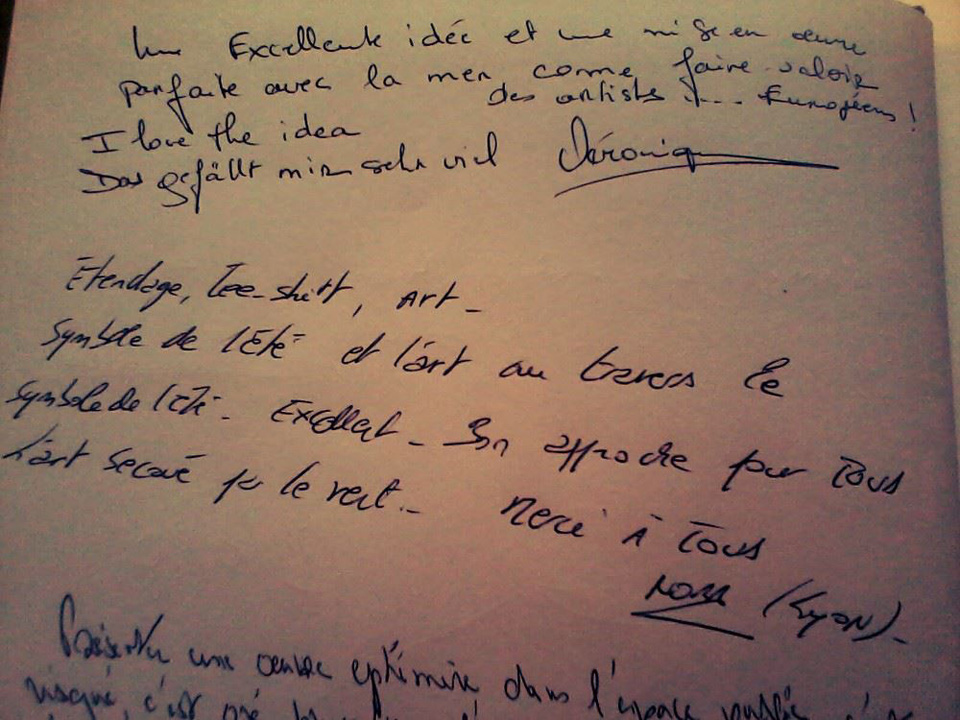 Une Excellente idée et une mise en œuvre
parfaite avec la mer, come faire valoir
des artistes .... Européens !
I love the idea
Das gefällt mir sehr viel Véroniq
Etendage, Tee-shirt, Art -
Symbole de l'Eté et l'art au travers le
symbole de l'Eté - Excellent - Bn approche pour Tous
L'art secoué par le vent.- Merci à Tous
(Lyon) -
Présenter une œuvre ephémère dans l'espace public
risqué, c'est